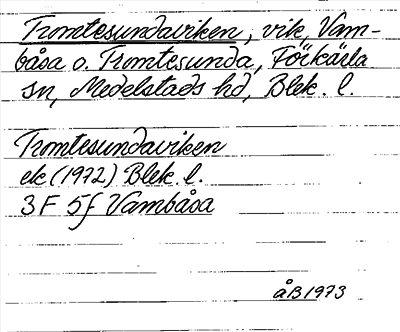 Tromtesundaviken, vik, Vam-
båsa o. Tromtesunda, Förkärla
sn, Medelstads hd, Blek. l.
Tromtesundaviken
ek (1972) Blek. l.
3 F 5f Vambåsa
åB 1973